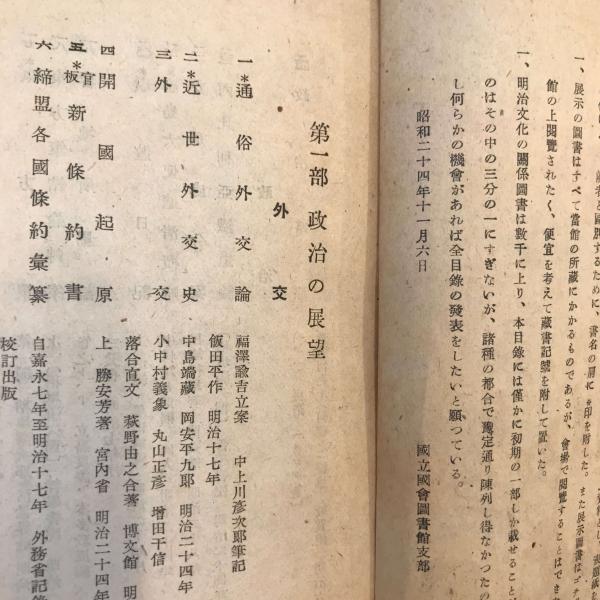 一、展示の圖書はすべて當館の所藏にかかるものであるが、會場で閲覽することはでき
館の上閲覽されたく、便宜を考えて藏書記號を附して置いた。
一、明治文化の關係圖書は數千に上り、本目録には僅かに初期の一部しか載せること
のはその中の三分の一にすぎないが、諸種の都合で豫定通り陳列し得なかつたの
し何らかの機會があれば全目録の發表をしたいと願つている。
昭和二十四年十一月六日
國立國會圖書館支部
第一部 政治の展望
外交
一*通俗外交論 福澤諭吉立案 中上川彦次郎筆記
飯田平作 明治十七年
二*近世外交史 中島端藏 岡安平九郎 明治二十四年
三 外交 小中村義象 丸山正彦 增田于信
落合直文 萩野由之合著 博文館 明
四 開國起原 上 勝安芳著 宮内省 明治二十四年
五*官板新條約書
六 締盟各國條約彙纂 自嘉永七年至明治十七年 外務省記録
校訂出版